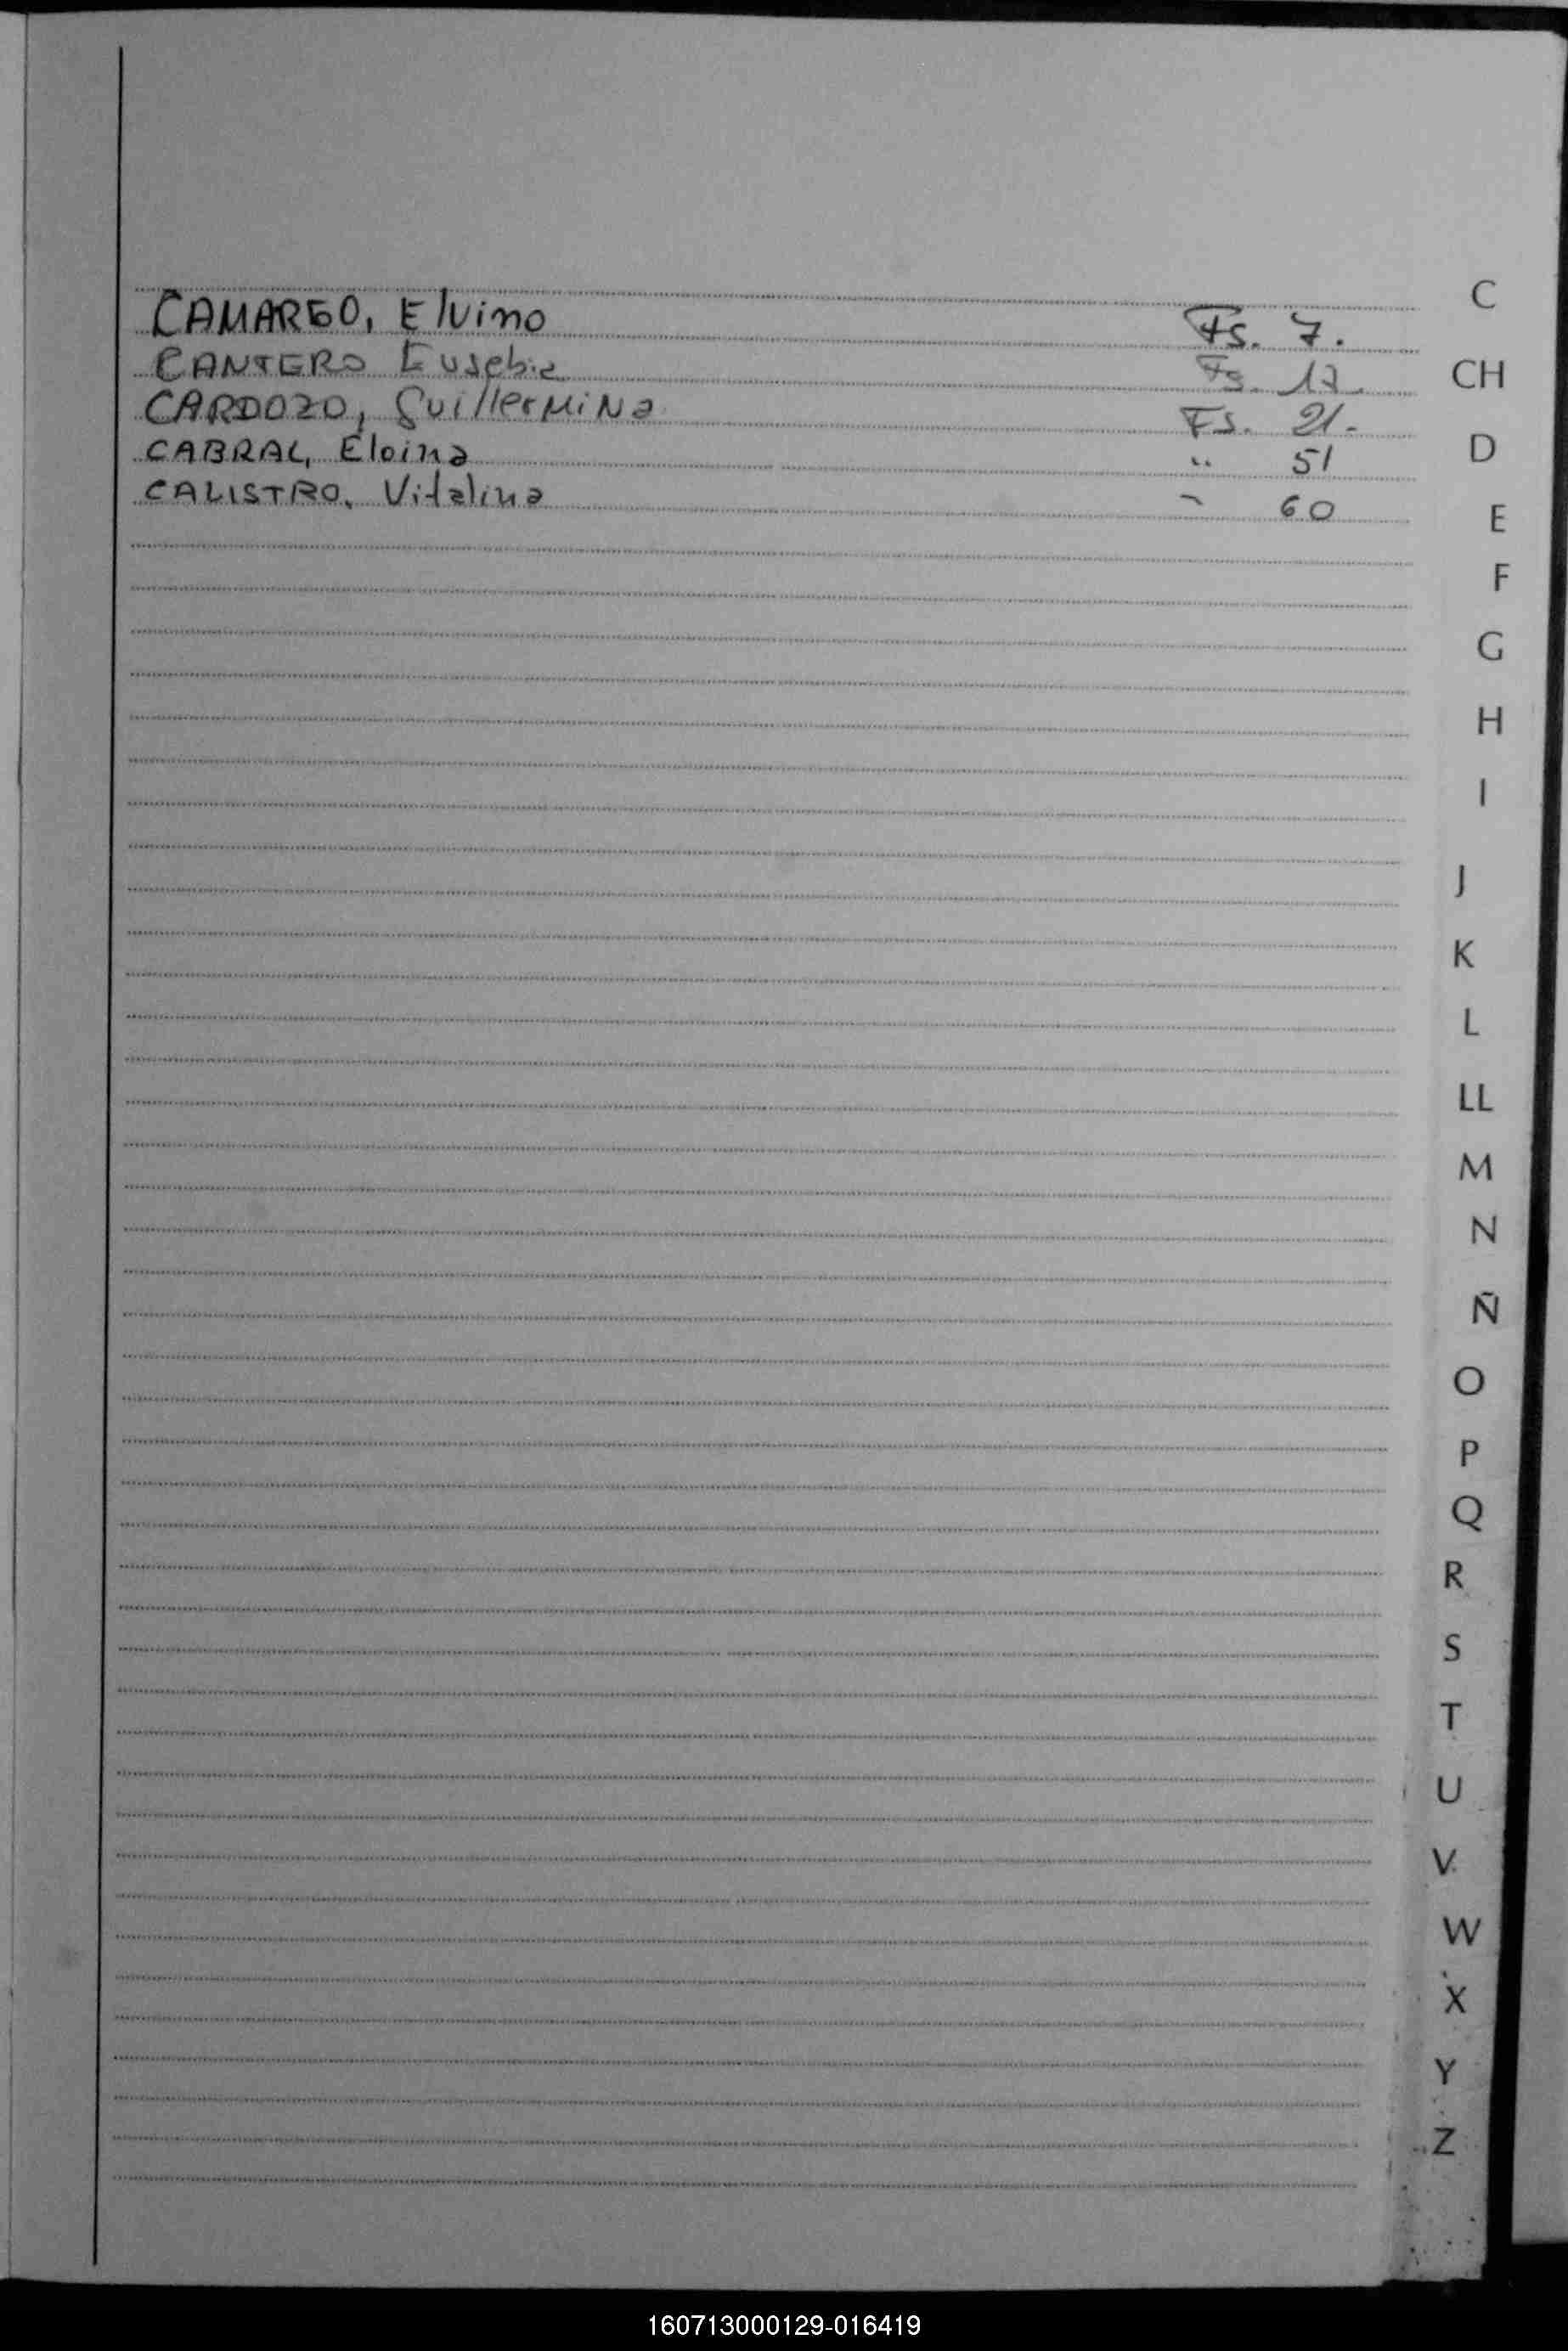 CAMARGO, Elvino Fs. 7.
CANTERO Eusebia Fs. 17.
CARDOZO, Guillermina Fs. 21.
CABRAL, Eloina " 51
CALISTRO, Vitalina - 60
C
CH
D
E
F
G
H
I
J
K
L
LL
M
N
Ñ
O
P
Q
R
S
T
U
V
W
X
Y
Z
160713000129-016419